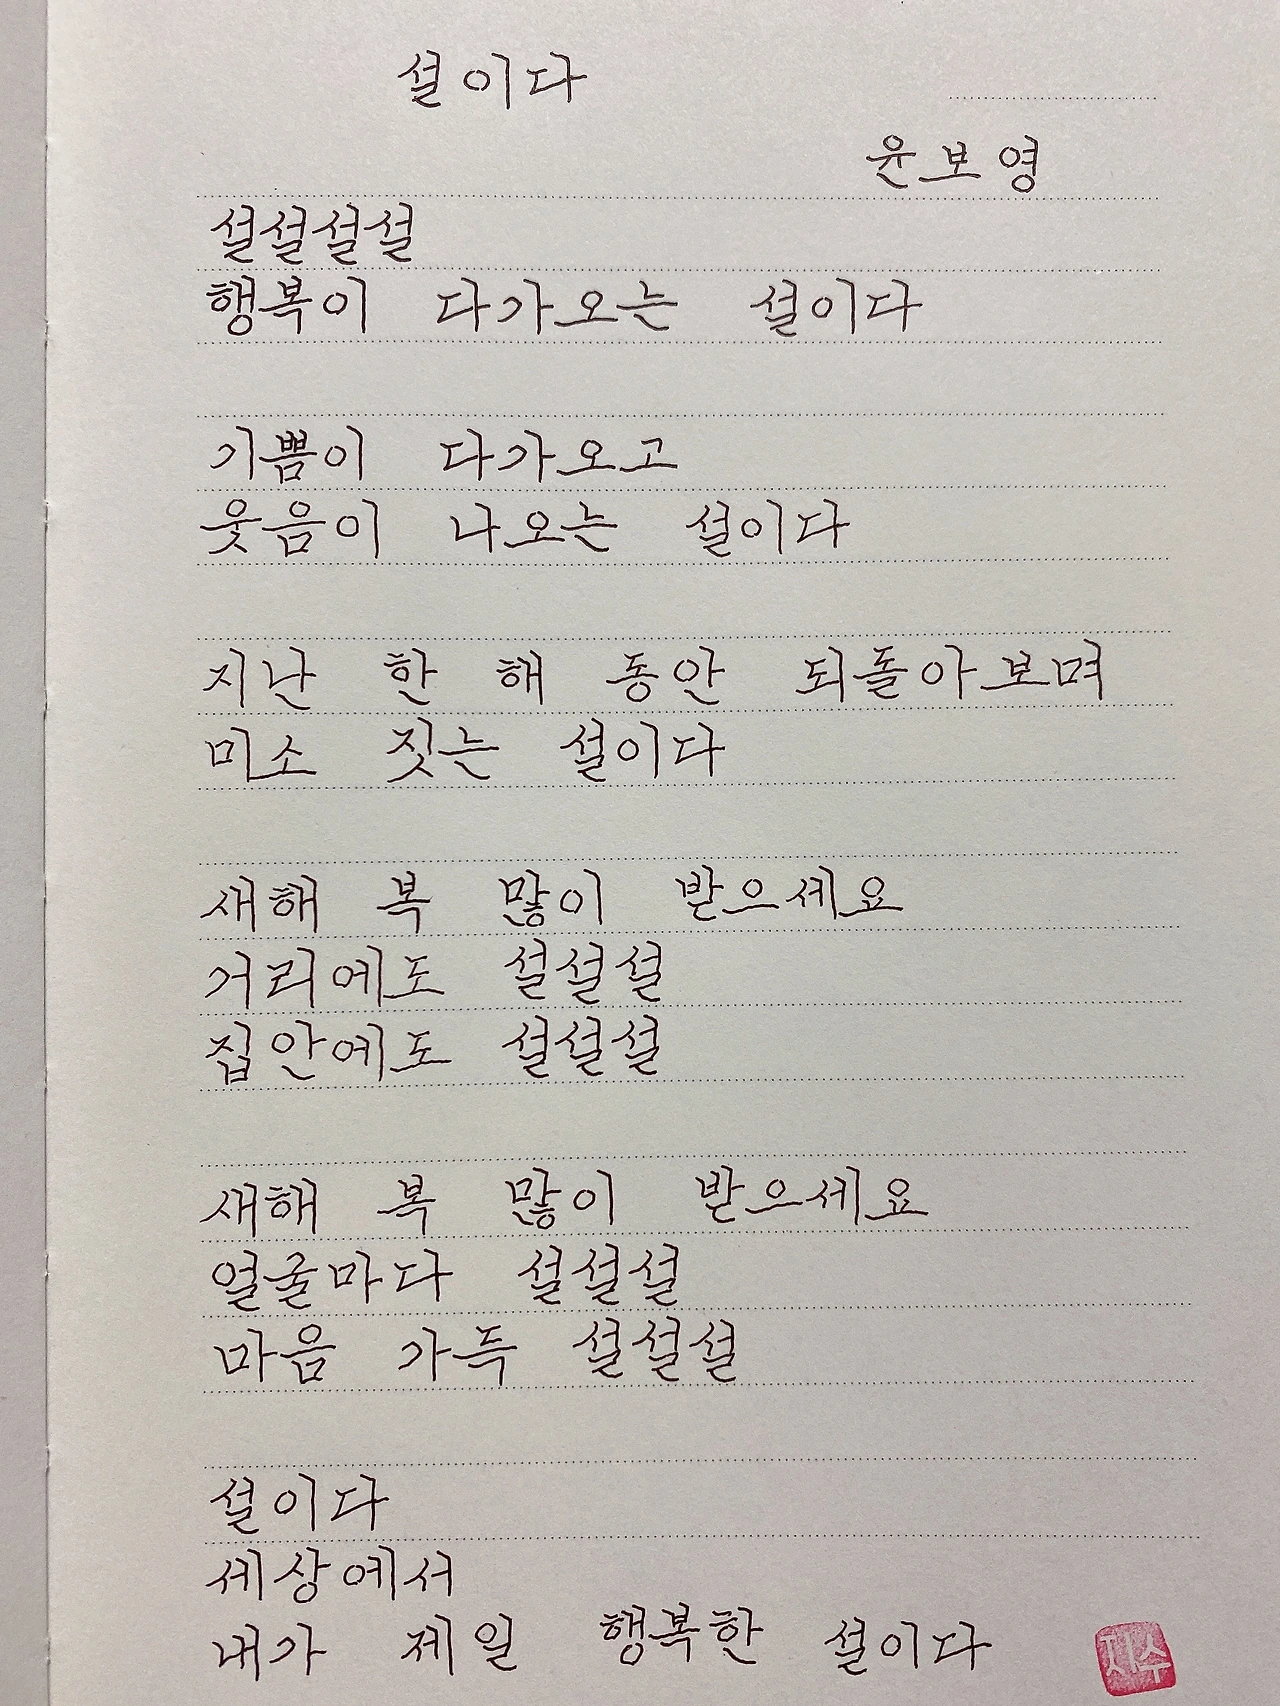 설이다
윤보영
설설설설
행복이 다가오는 설이다
기쁨이 다가오고
웃음이 나오는 설이다
지난 한 해 동안 되돌아보며
미소 짓는 설이다
새해 복 많이 받으세요
거리에도 설설설
집안에도 설설설
새해 복 많이 받으세요
얼굴마다 설설설
마음 가득 설설설
설이다
세상에서
내가 제일 행복한 설이다
지수